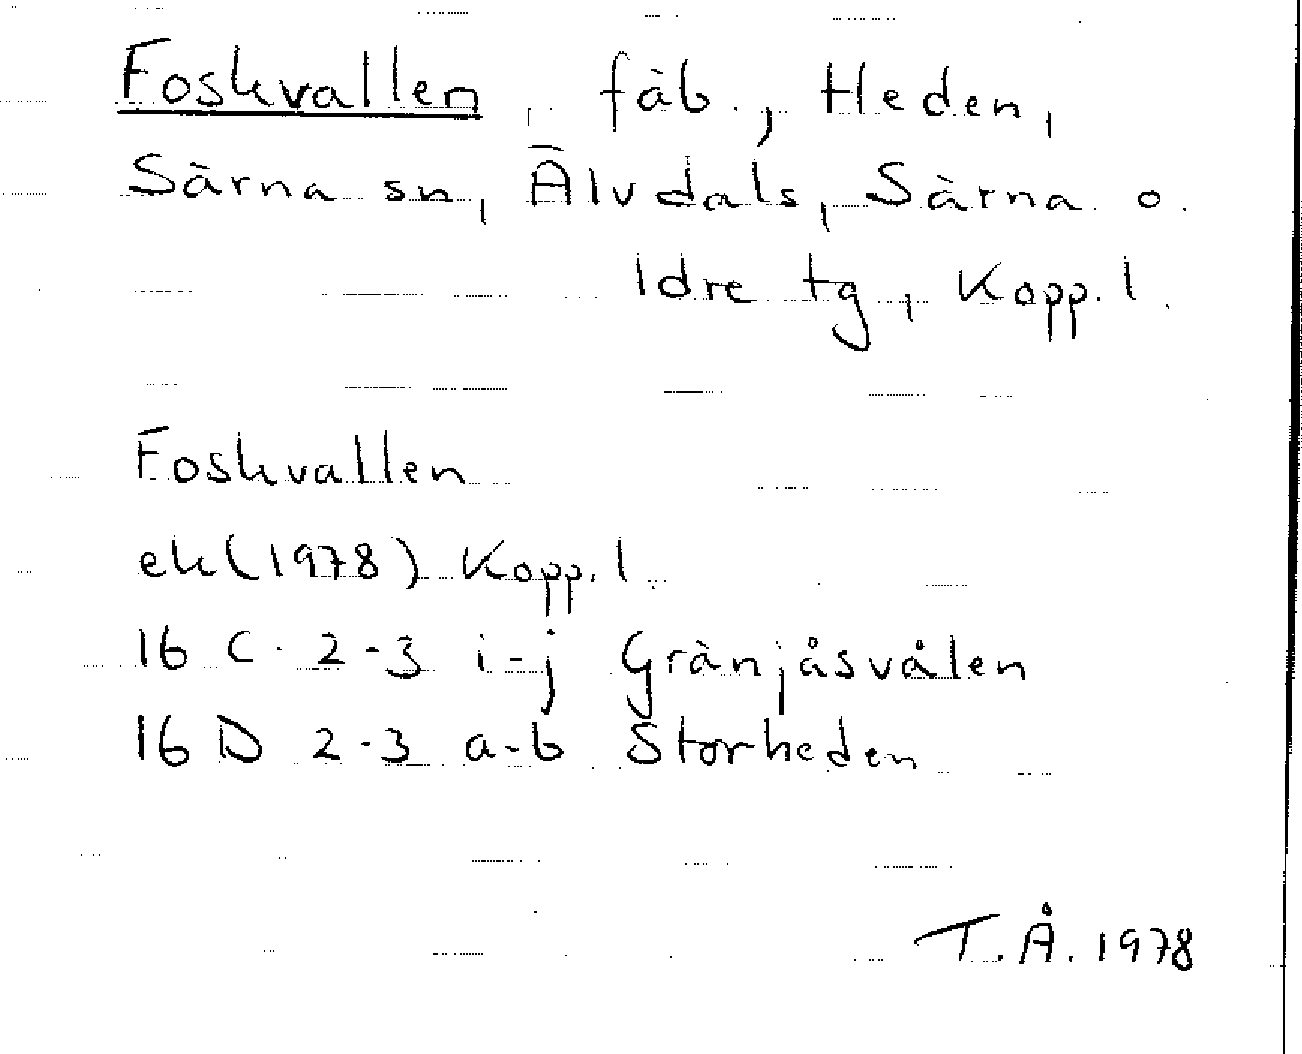 Foskvallen, fäb., Heden,
Särna sn, Älvdals, Särna o.
Idre tg, Kopp. l.
Foskvallen
ek (1978) Kopp. l.
16 C 2-3 i-j Gränjåsvålen
16 D 2-3 a-b Storheden
T.Å. 1978